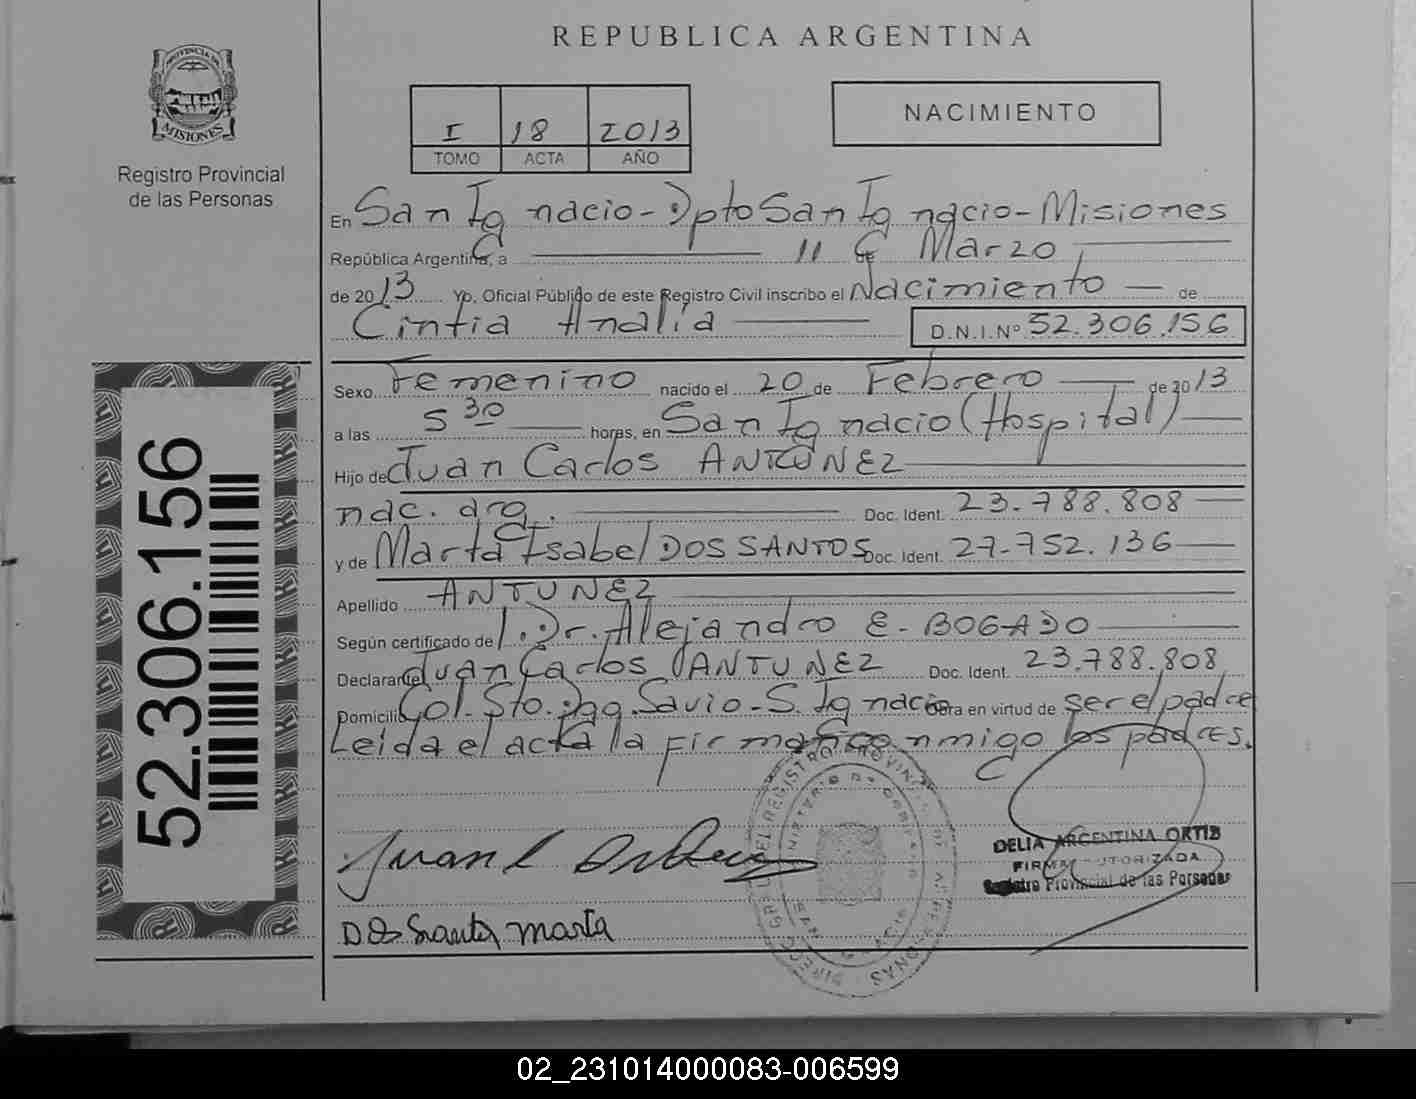 REPUBLICA ARGENTINA
PROVINCIA DE
MISIONES
Registro Provincial
de las Personas
I 18 2013
TOMO ACTA AÑO
NACIMIENTO
En San Ignacio - Dpto San Ignacio - Misiones
República Argentina, a 11 de Marzo
de 2013 Yo, Oficial Público de este Registro Civil inscribo el Nacimiento de
Cintia Analía D.N.I.Nº 52.306.156
Sexo Femenino nacido el 20 de Febrero de 2013
a las 5 30 horas, en San Ignacio (Hospital)
Hijo de Juan Carlos ANTUNEZ
nac. arg. Doc. Ident. 23.788.808
y de Marta Isabel DOS SANTOS Doc. Ident. 27.752.136
Apellido ANTUNEZ
Según certificado de l. Dr. Alejandro E. BOGADO
Declarante Juan Carlos ANTUNEZ Doc. Ident. 23.788.808
Domicilio Col. Sto. Dgo. Savio - S. Ignacio Obra en virtud de ser el padre
Leida el acta la firman conmigo los padres.
52.306.156
Juan C
Dos Santos marta
DELIA ARGENTINA ORTIZ
FIRMA AUTORIZADA
Registro Provincial de las Personas
02_231014000083-006599